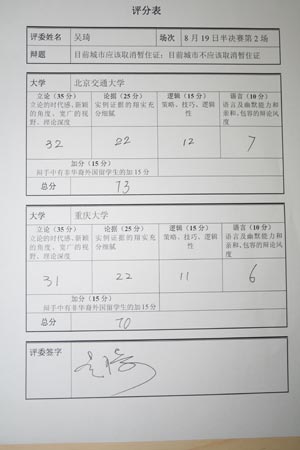 评分表
评委姓名 吴琦 场次 8月19日半决赛第2场
辩题 目前城市应该取消暂住证；目前城市不应该取消暂住证
大学 北京交通大学
立论（35分） 论据（25分） 逻辑（15分） 语言（10分）
立论的时代感、新颖 实例证据的翔实充 策略、技巧、逻辑 语言及幽默能力和
的角度、宽广的视 分细腻 性 亲和、包容的辩论风
野、理论深度 度
32 22 12 7
加分（15分）
辩手中有非华裔外国留学生的加15分
总分 73
大学 重庆大学
立论（35分） 论据（25分） 逻辑（15分） 语言（10分）
立论的时代感、新颖 实例证据的翔实充 策略、技巧、逻辑 语言及幽默能力和
的角度、宽广的视 分细腻 性 亲和、包容的辩论风
野、理论深度 度
31 22 11 6
加分（15分）
辩手中有非华裔外国留学生的加15分
总分 70
评委签字